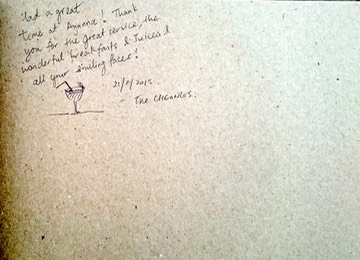 Had a great
time at Ayanna! Thank
you for the great service, the
wonderful breakfasts & Juices &
all your smiling faces!
21/8/2015
- THE